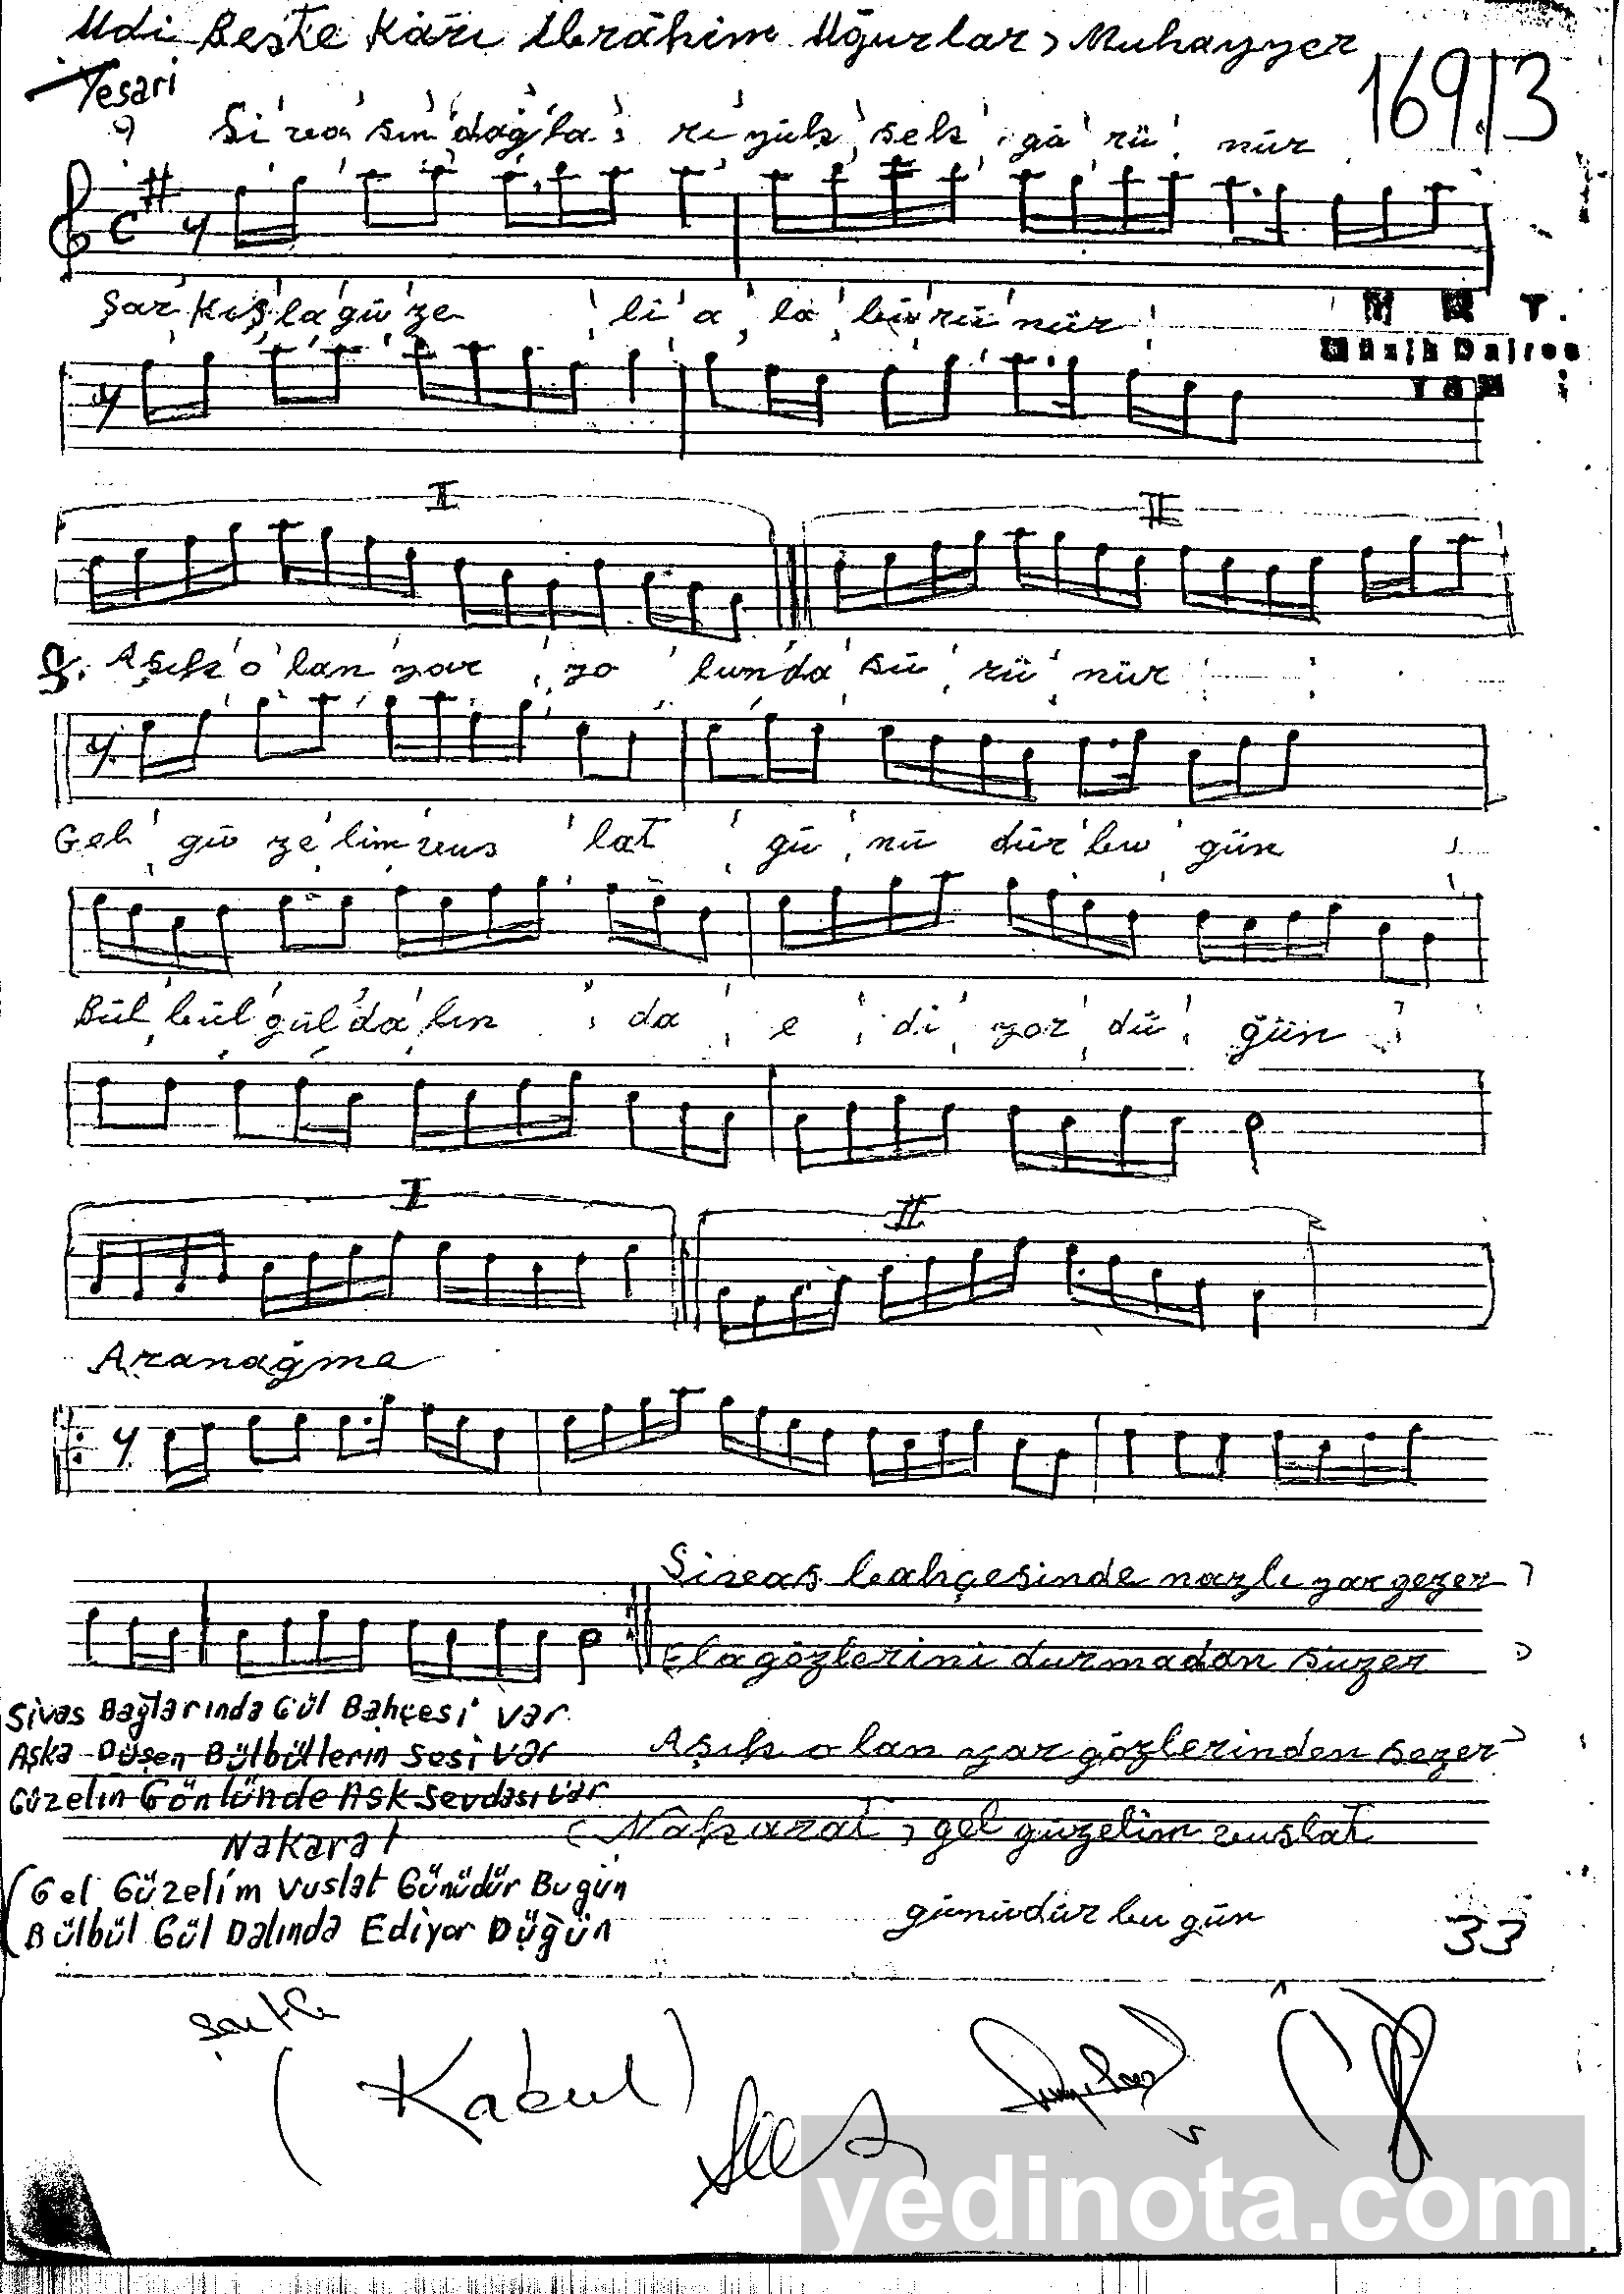 Udi Beste Kârı İbrâhim Uğurlar, Muhayyer
Yesari
169/3
Si vas sın dağ la rı yük sek gö rü nür
Şar kış la gü ze li a la bü rü nür
M T.
Müzik Daires
I
II
Aşık o lan yar yo lun da sü rü nür
Gel gü ze lim vus lat gü nü dür bu gün
Bül bül gül da lın da e di yor dü ğün
I
II
Aranağme
Sivas bahçesinde nazlı yar gezer
Ela gözlerini durmadan süzer
Sivas Bağlarında Gül Bahçesi var
Aşka Düşen Bülbüllerin sesi var
Aşık olan yar gözlerinden sezer
Güzelin Gönlünde Aşk sevdası var
Nakarat
(Nakarat) gel güzelim vuslat
(Gel Güzelim Vuslat Günüdür Bugün
günüdür bu gün
Bülbül Gül Dalında Ediyor Düğün
33
(Kabul)
yedinota.com